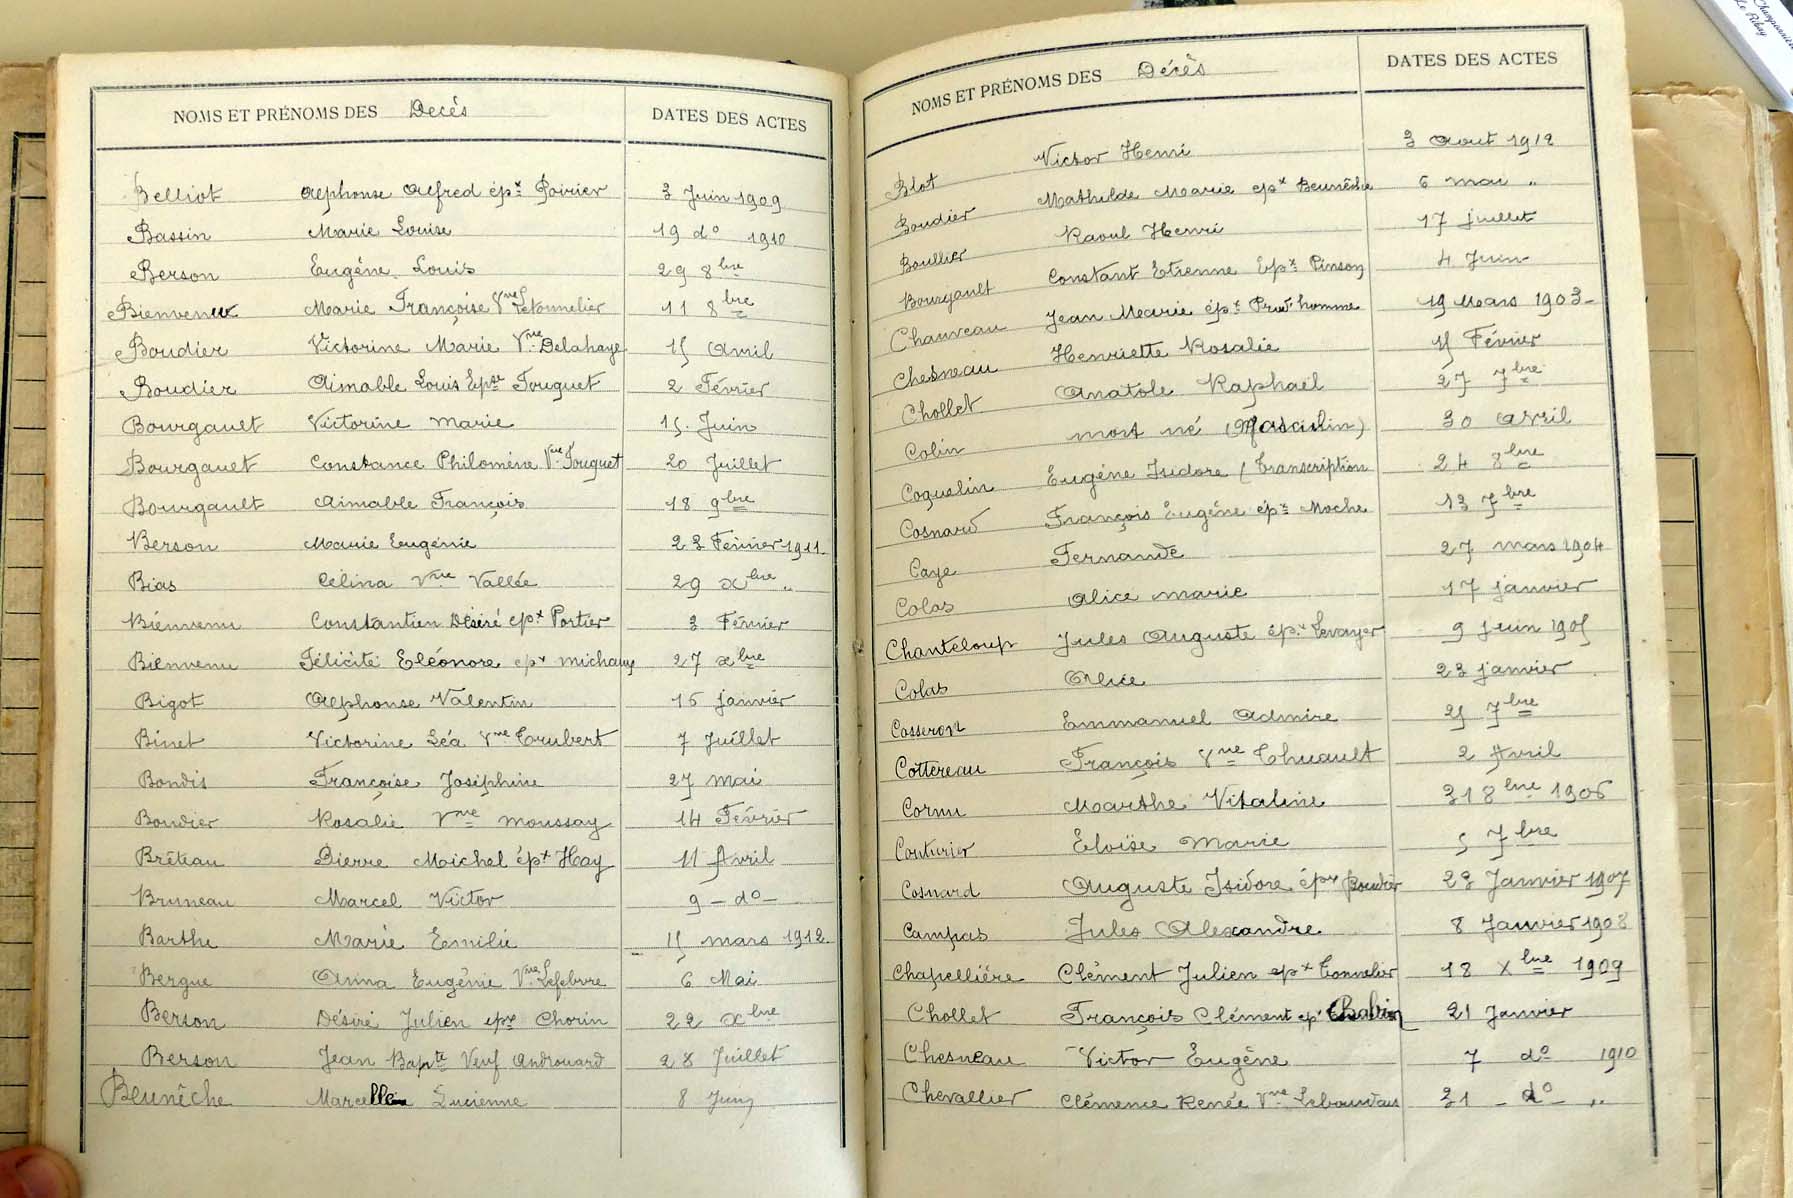 NOMS ET PRÉNOMS DES Decés DATES DES ACTES
Belliot Alphonse Alfred épx Poirier 3 Juin 1909
Bassin Marie Louise 19 do 1910
Berson Eugéne Louis 29 8bre
Bienvenu Marie Françoise Vve Letonnelier 11 8bre
Boudier Victorine Marie Vve Delahaye 15 Avril
Boudier Aimable Louis Epse Fouquet 2 Février
Bourgault Victorine Marie 15 Juin
Bourgault Constance Philomène Vve Fouquet 20 Juillet
Bourgault Aimable François 18 9bre
Berson Marie Eugénie 23 Février 1911
Bias Célina Vve Vallée 29 xbre "
Bienvenu Constantien Désiré épx Portier 3 Février
Bienvenu Félicité Eléonore epx 27 xbre
Bigot Alphonse Valentin 15 janvier
Binet Victorine Léa Vve Trubert 7 Juillet
Bondis Françoise Joséphine 27 Mai
Boudier Rosalie Vve Moussay 14 Février
Brêteau Pierre Michel épx Hay 11 Avril
Bruneau Marcel Victor 9 - do -
Barthe Marie Emilie 15 mars 1912
Bergue Anna Eugénie Vve Lefebvre 6 Mai
Berson Désiré Julien epx Chorin 22 xbre
Berson Jean Bapte Veuf Androuard 28 Juillet
Beunêche Marcelle Lucienne 8 Juin
NOMS ET PRÉNOMS DES Décès DATES DES ACTES
Blot Victor Henri 3 Aout 1912
Boudier Mathilde Marie epx Beunêche 6 mai "
Boullier Raoul Henri 17 juillet
Bourgault Constant Etienne Epx Pinson 4 Juin
Chauveau Jean Marie épx Prud'homme 19 Mars 1903
Chesneau Henriette Rosalie 15 Février
Chollet Anatole Raphaël 27 7bre
Colin mort né (Masculin) 30 Avril
Coquelin Eugéne Isidore (Transcription 24 8bre
Cosnard François Eugéne épx Moche 13 7bre
Caye Fernande 27 mars 1904
Colas Alice Marie 17 janvier
Chanteloup Jules Auguste épx Levayer 9 juin 1905
Colas Alice 23 janvier
Cosseron Emmanuel Admire 25 7bre
Cottereau François Vve Thuault 2 Avril
Cornu Marthe Vitaline 31 8bre 1906
Couturier Eloïse Marie 5 7bre
Cosnard Auguste Isidore épx Boudier 23 Janvier 1907
Campas Jules Alexandre 8 Janvier 1908
Chapellière Clément Julien epx Tonnelier 18 Xbre 1909
Chollet François Clément ep 21 Janvier
Chesneau Victor Eugéne 7 do 1910
Chevallier Clémence Renée Vve Lebourdais 31 - do - "
Le Ribay